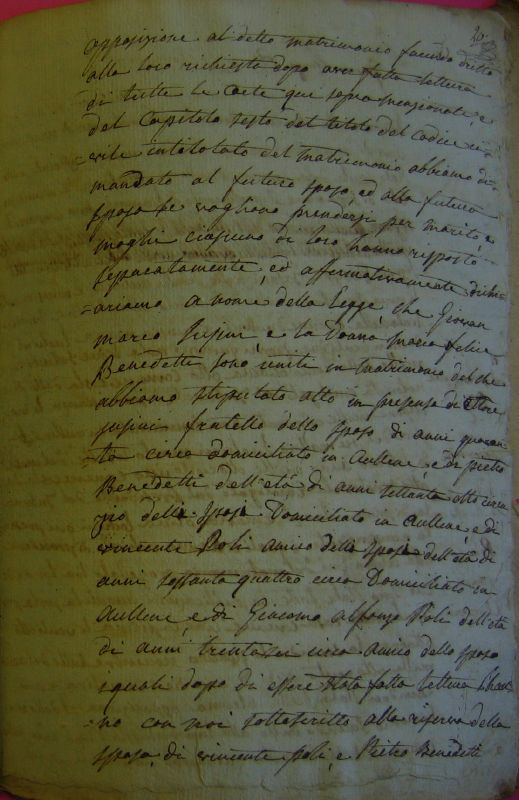 20
opposizione al detto matrimonio facendo dritto
alla loro richiesta dopo aver fatta lettura
di tutte le carte qui sopra menzionate, e
del Capitolo sesto del titolo del codice ci-
-vile intitolato del matrimonio abbiamo di-
mandato al futuro sposo, ed alla futura
sposa se vogliono prendersi per marito, e
moglie ciascuno di loro hanno risposto
separatamente, ed affermativamente dichi-
-ariamo a nome della Legge, che Giovan
marco Susini, e la Donna maria felice
Benedetti sono uniti in matrimonio del che
abbiamo stipulato atto in presenza di Ettore
susini fratello dello sposo di anni quaran
-ta circa domiciliato in aullene, e di pietro
Benedetti dell'età di anni settanta otto circa
zio della sposa Domiciliato in aullene, e di
vincente Poli amico della sposa dell'età di
anni sessanta quattro circa Domiciliato in
aullene, e di Giacomo alfonzo Poli dell'età
di anni trenta sei circa amico dello sposo
i quali dopo di essere stata fatta lettura
-no con noi sottoscritto alla riserva della
sposa, di vincente poli, e Pietro Benedetti